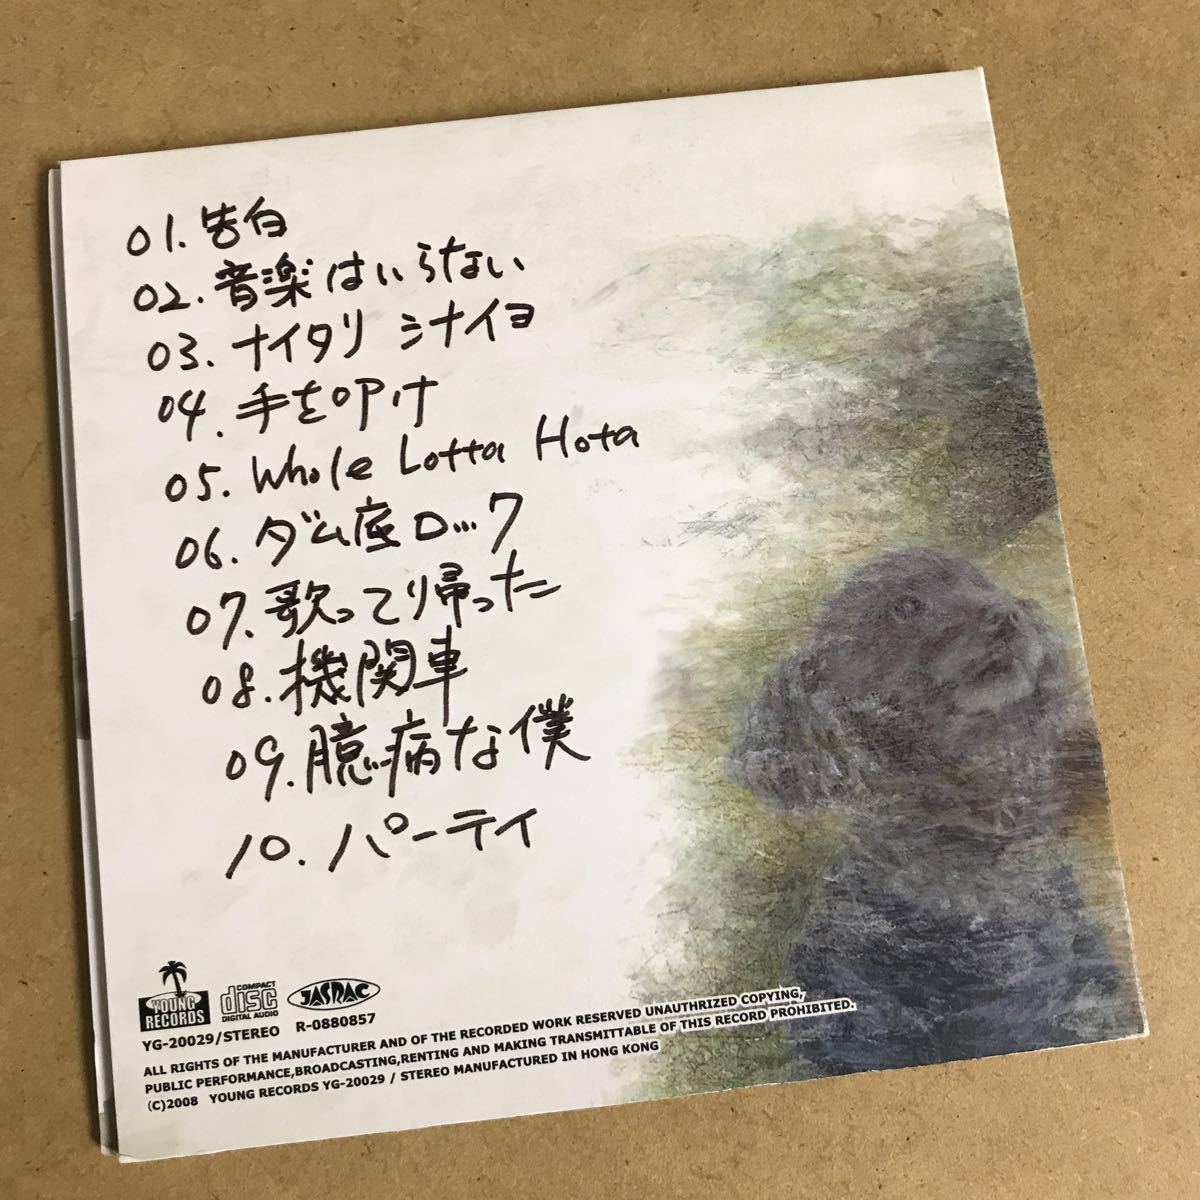 01. 告白
02. 音楽はいらない
03. ナイタリ シナイヨ
04. 手を叩け
05. Whole Lotta Hota
06. ダム底ロック
07. 歌って帰った
08. 機関車
09. 臆病な僕
10. パーティ
YOUNG RECORDS
COMPACT disc DIGITAL AUDIO
JASRAC
YG-20029/STEREO R-0880857
ALL RIGHTS OF THE MANUFACTURER AND OF THE RECORDED WORK RESERVED UNAUTHRIZED COPYING,
PUBLIC PERFORMANCE,BROADCASTING,RENTING AND MAKING TRANSMITTABLE OF THIS RECORD PROHIBITED.
(C)2008 YOUNG RECORDS YG-20029 / STEREO MANUFACTURED IN HONG KONG